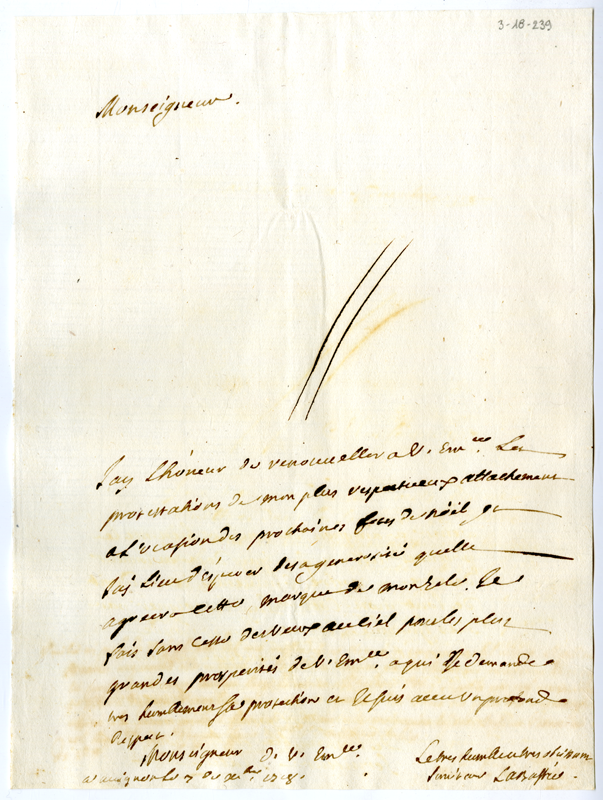 3-18-239
Monseigneur.
Jay l'hôneur de renouveller a V. Em.ce Les
protestations de mon plus respectueux attachement
a L'ocasion des prochaines festes de nöil et
Jay lieu d'esperer de sa generosité quelle
agreera cette marque de mon zele. Je
fais sans cesse des vœux au ciel pour les plus
grandes prosperités de V. Em.ce a qui Je demande
tres humblement sa protection et Je suis avec un profond
Respect.
Monseigneur de V. Em.ce
a avignon le 7 de xbre
Le tres humble et tres obeissant
serviteur